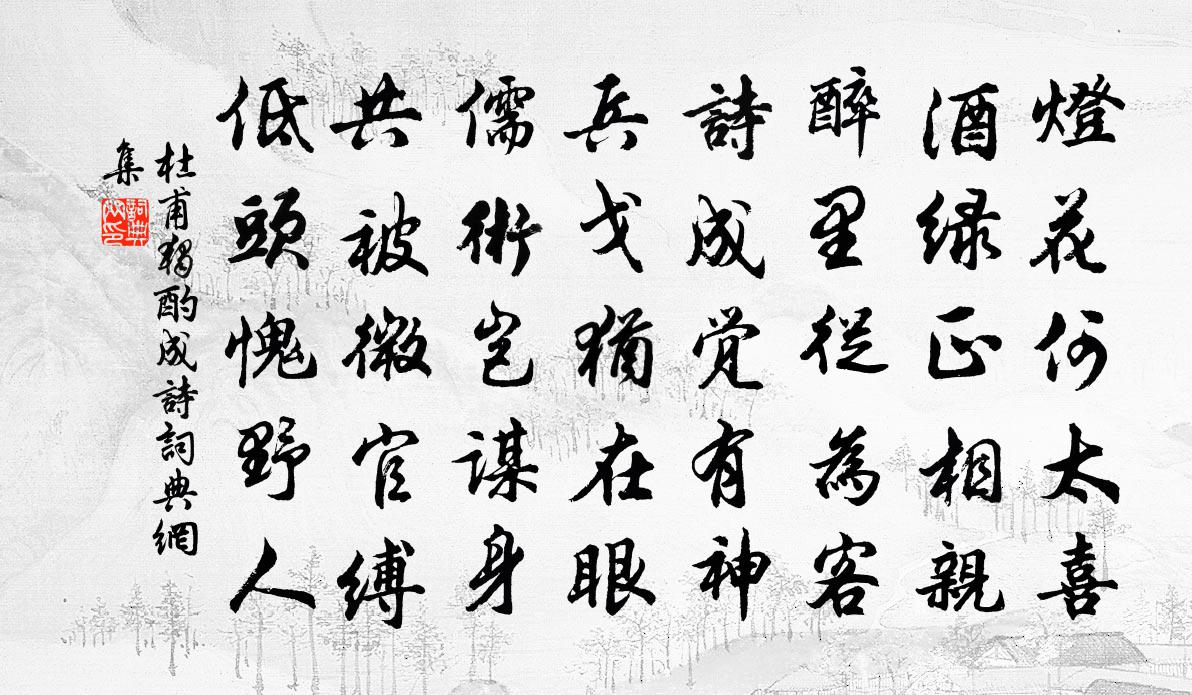 燈花何太喜
酒绿正相親
醉里從為客
詩成觉有神
兵戈猶在眼
儒術岂謀身
共被微官縛
低頭愧野人
杜甫獨酌成詩詞典網
集
詞典
网印